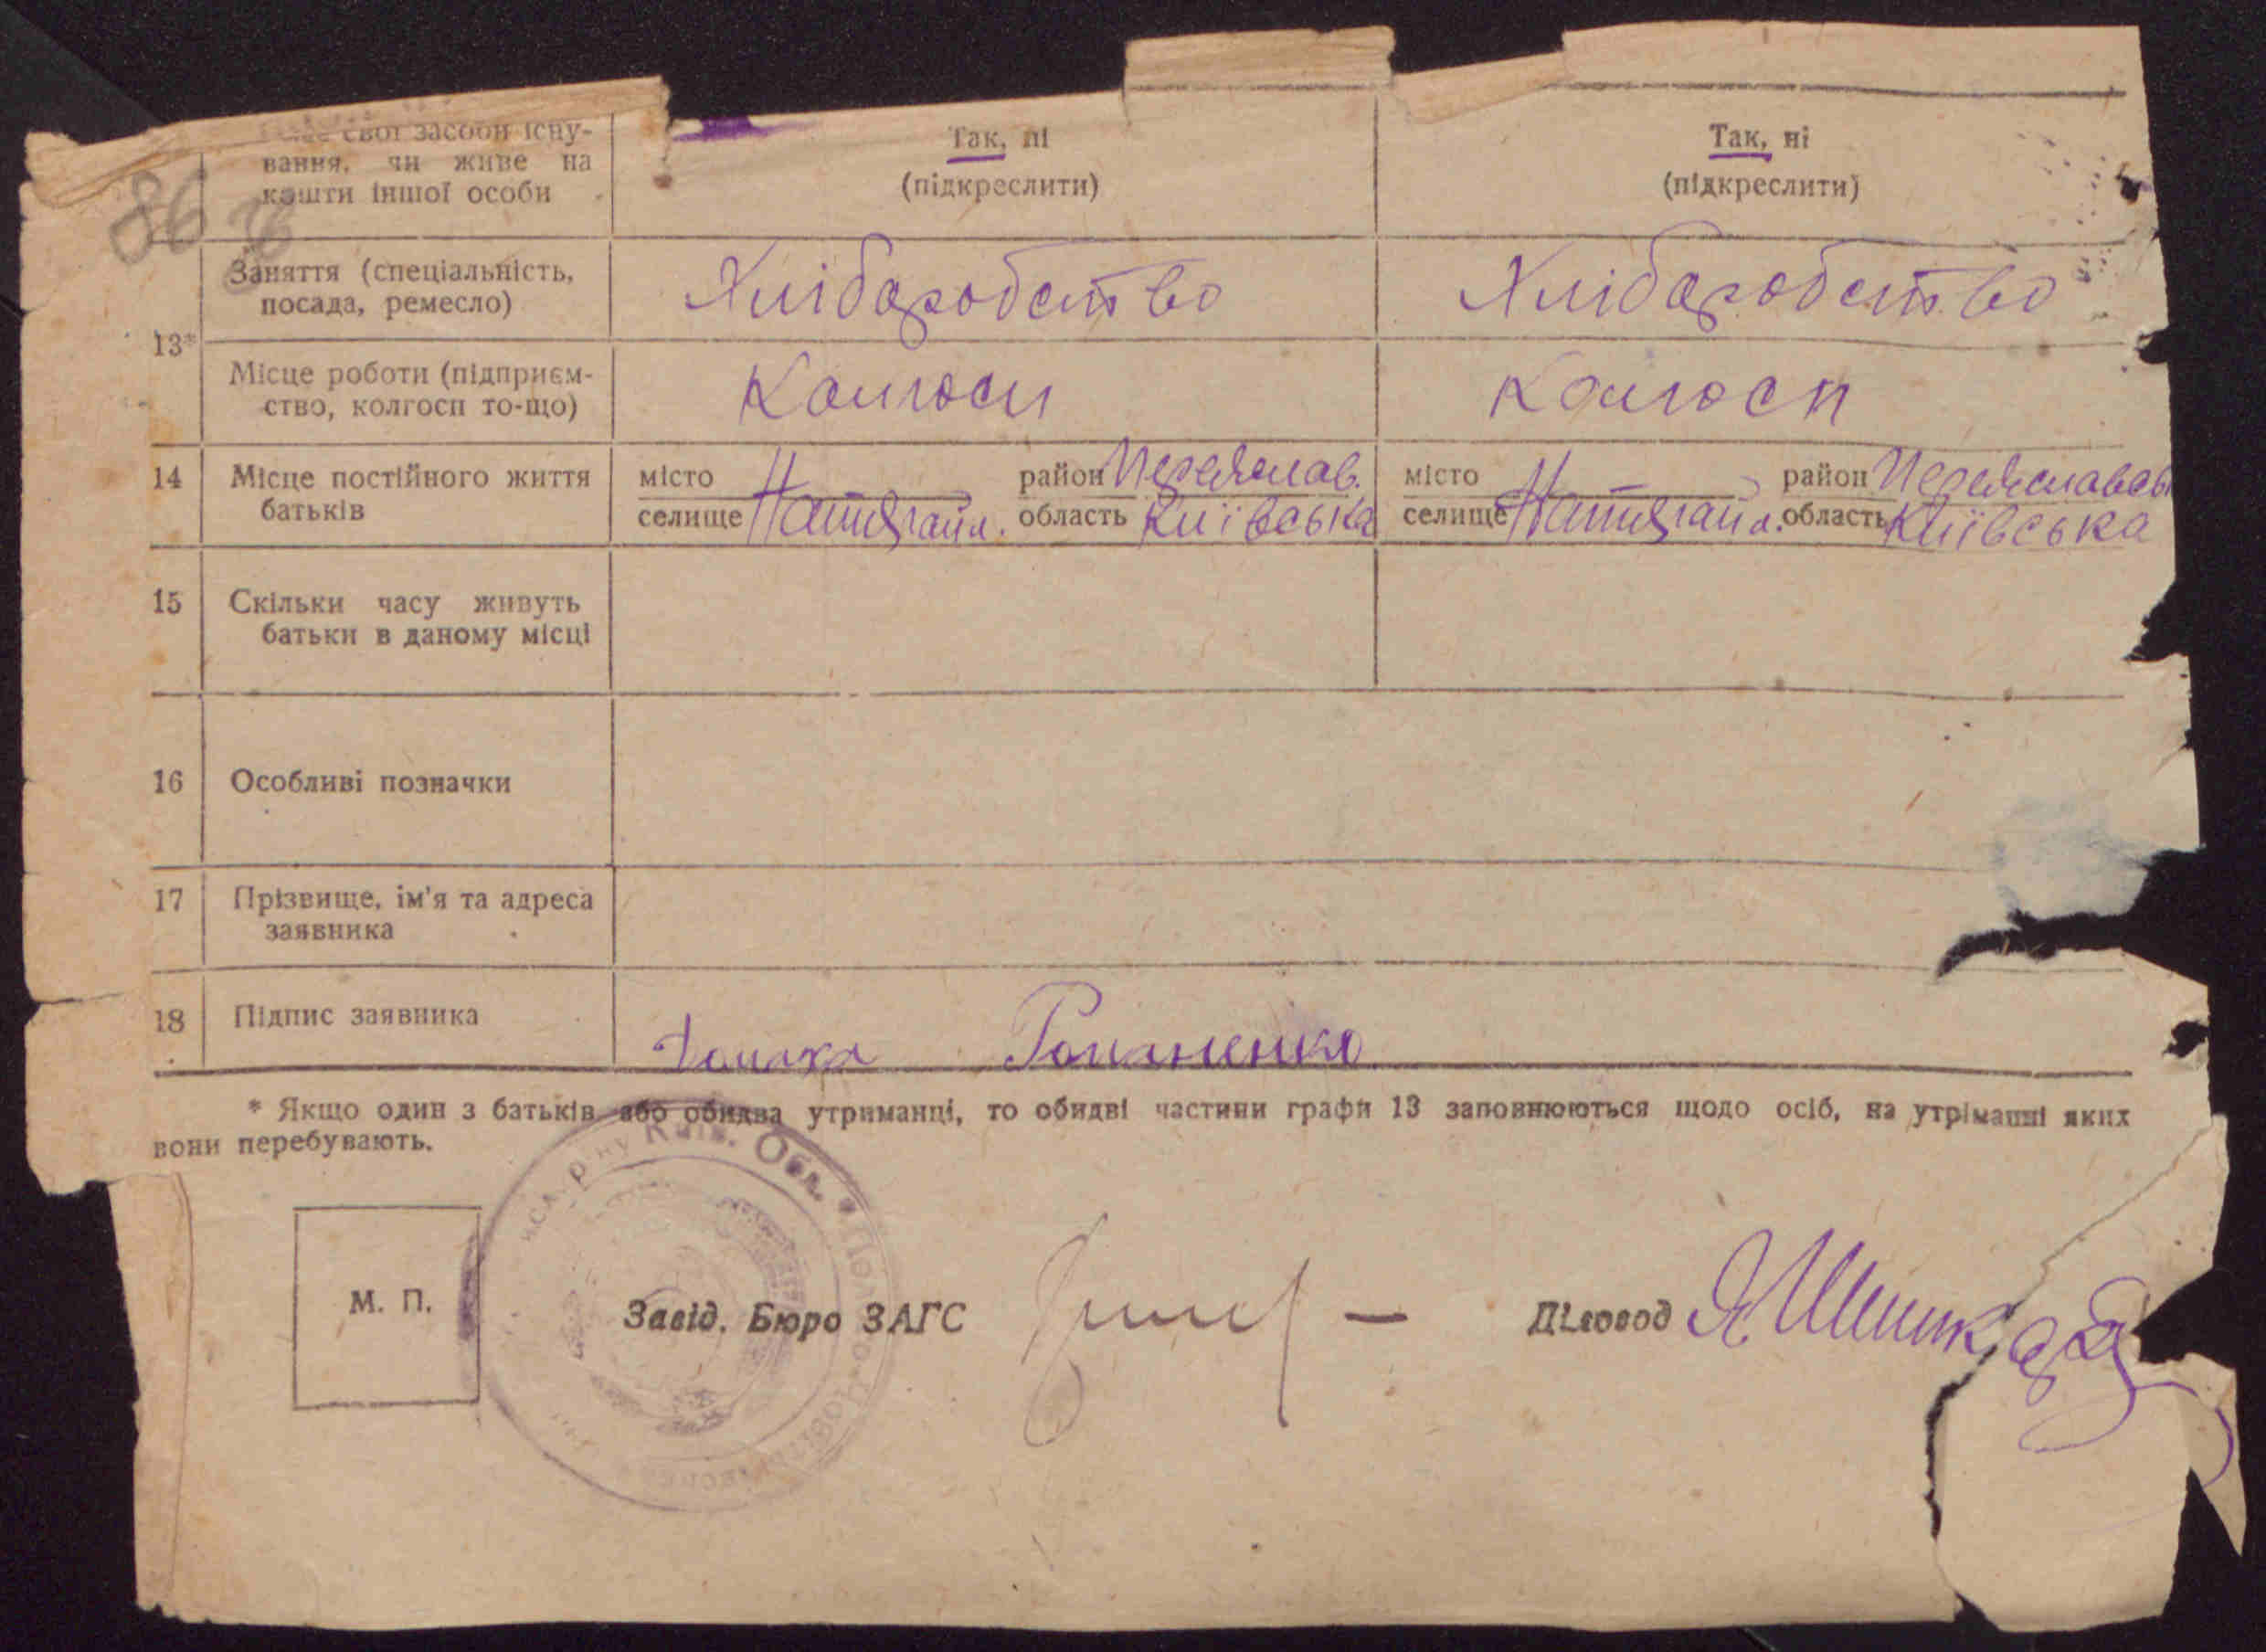 свої засоби існу-
вання, чи живе на
кошти іншої особи
Так, ні
(підкреслити)
Так, ні
(підкреслити)
86
13*
Заняття (спеціальність,
посада, ремесло)
Хліборобство
Хліборобство
Місце роботи (підприєм-
ство, колгосп то-що)
Колгосп
Колгосп
14
Місце постійного життя
батьків
місто
селище
район Переяслав.
область Київська
місто
селище
район Переяславськ
область Київська
15
Скільки часу живуть
батьки в даному місці
16
Особливі позначки
17
Прізвище, ім'я та адреса
заявника
18
Підпис заявника
Романенко
* Якщо один з батьків або обидва утриманці, то обидві частини графи 13 заповнюються щодо осіб, на утріманні яких
вони перебувають.
Київ. Обл.
М. П.
Завід. Бюро ЗАГС
Діловод